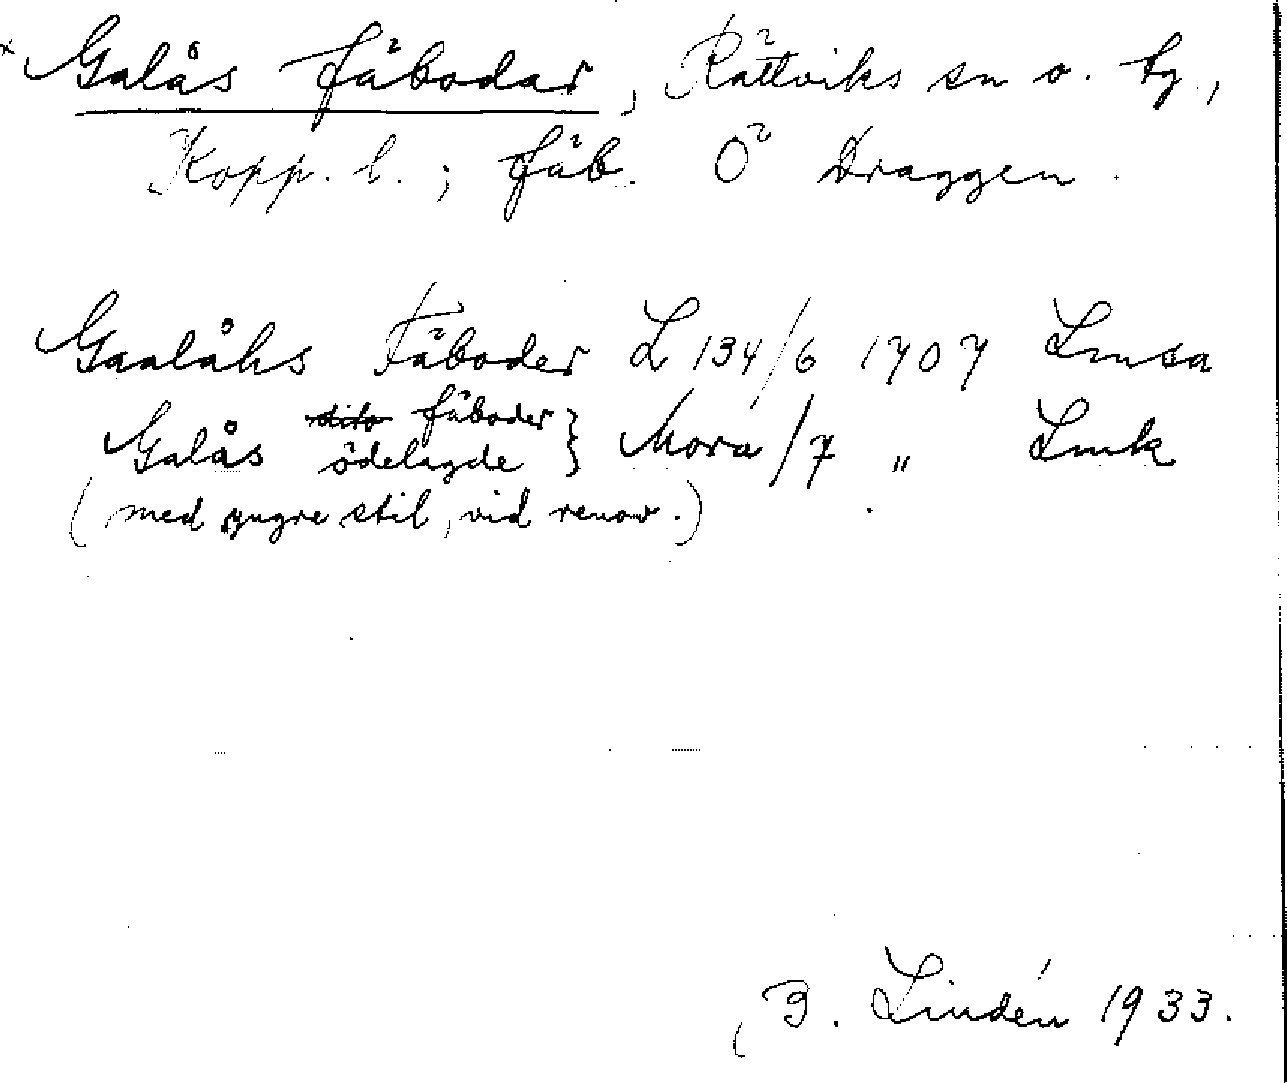 × Galås fäbodar, Rättviks sn o. by,
Kopp. l.; fäb. Ö Draggen.
Gaalåhs Fäboder L 134/6 1707 Lmsa
Galås dito fäboder ödelagde } Mora/7 " Lmk
(med yngre stil, vid renov.)
B. Lindén 1933.